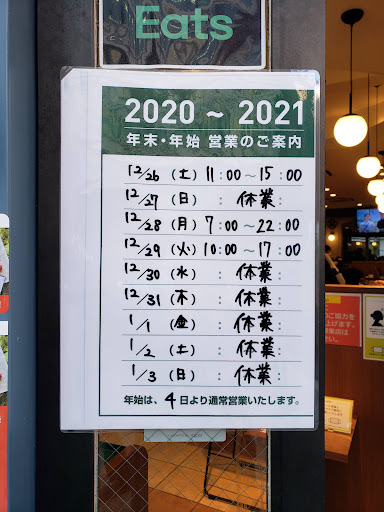 Eats
2020 ~ 2021
年末・年始 営業のご案内
12/26 (土) 11:00~15:00
12/27 (日) : 休業 :
12/28 (月) 7:00~22:00
12/29 (火) 10:00~17:00
12/30 (水) : 休業 :
12/31 (木) : 休業 :
1/1 (金) : 休業 :
1/2 (土) : 休業 :
1/3 (日) : 休業 :
年始は、4日より通常営業いたします。